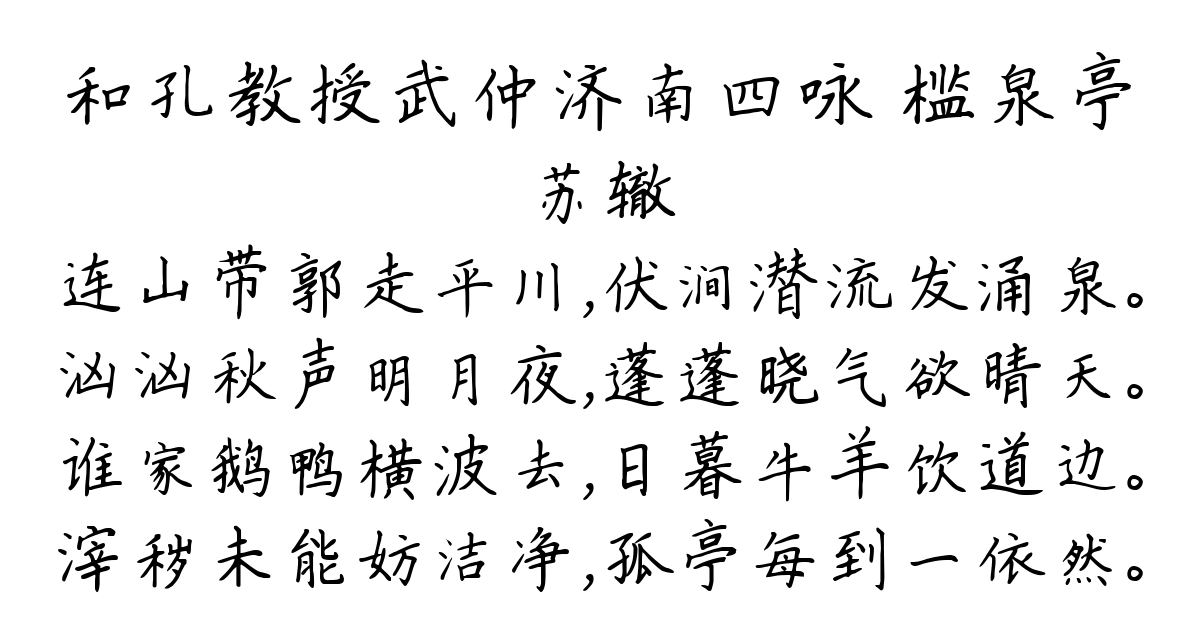 和孔教授武仲济南四咏 槛泉亭
苏辙
连山带郭走平川,伏涧潜流发涌泉。
汹汹秋声明月夜,蓬蓬晓气欲晴天。
谁家鹅鸭横波去,日暮牛羊饮道边。
滓秽未能妨洁净,孤亭每到一依然。